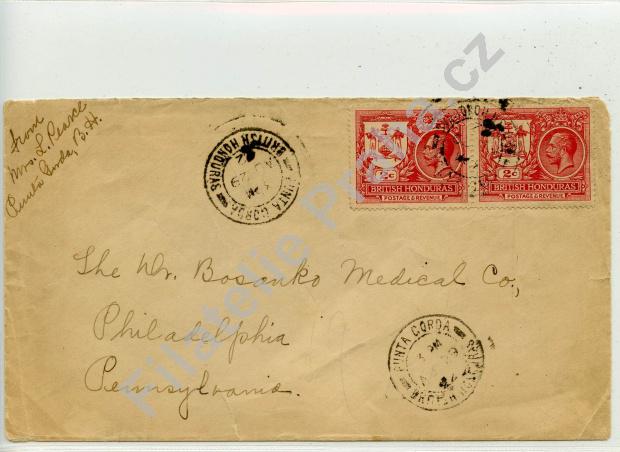 from
Mrs. L. Pearce
Punta Gorda, B.H.
PUNTA GORDA
BRITISH HONDURAS
PM
29
2c
BRITISH HONDURAS
POSTAGE & REVENUE
2c
BRITISH HONDURAS
POSTAGE & REVENUE
The Dr. Bosanko Medical Co.,
Philadelphia
Pennsylvania.
PUNTA GORDA
BRITISH HONDURAS
PM
Filatelie Praha.cz